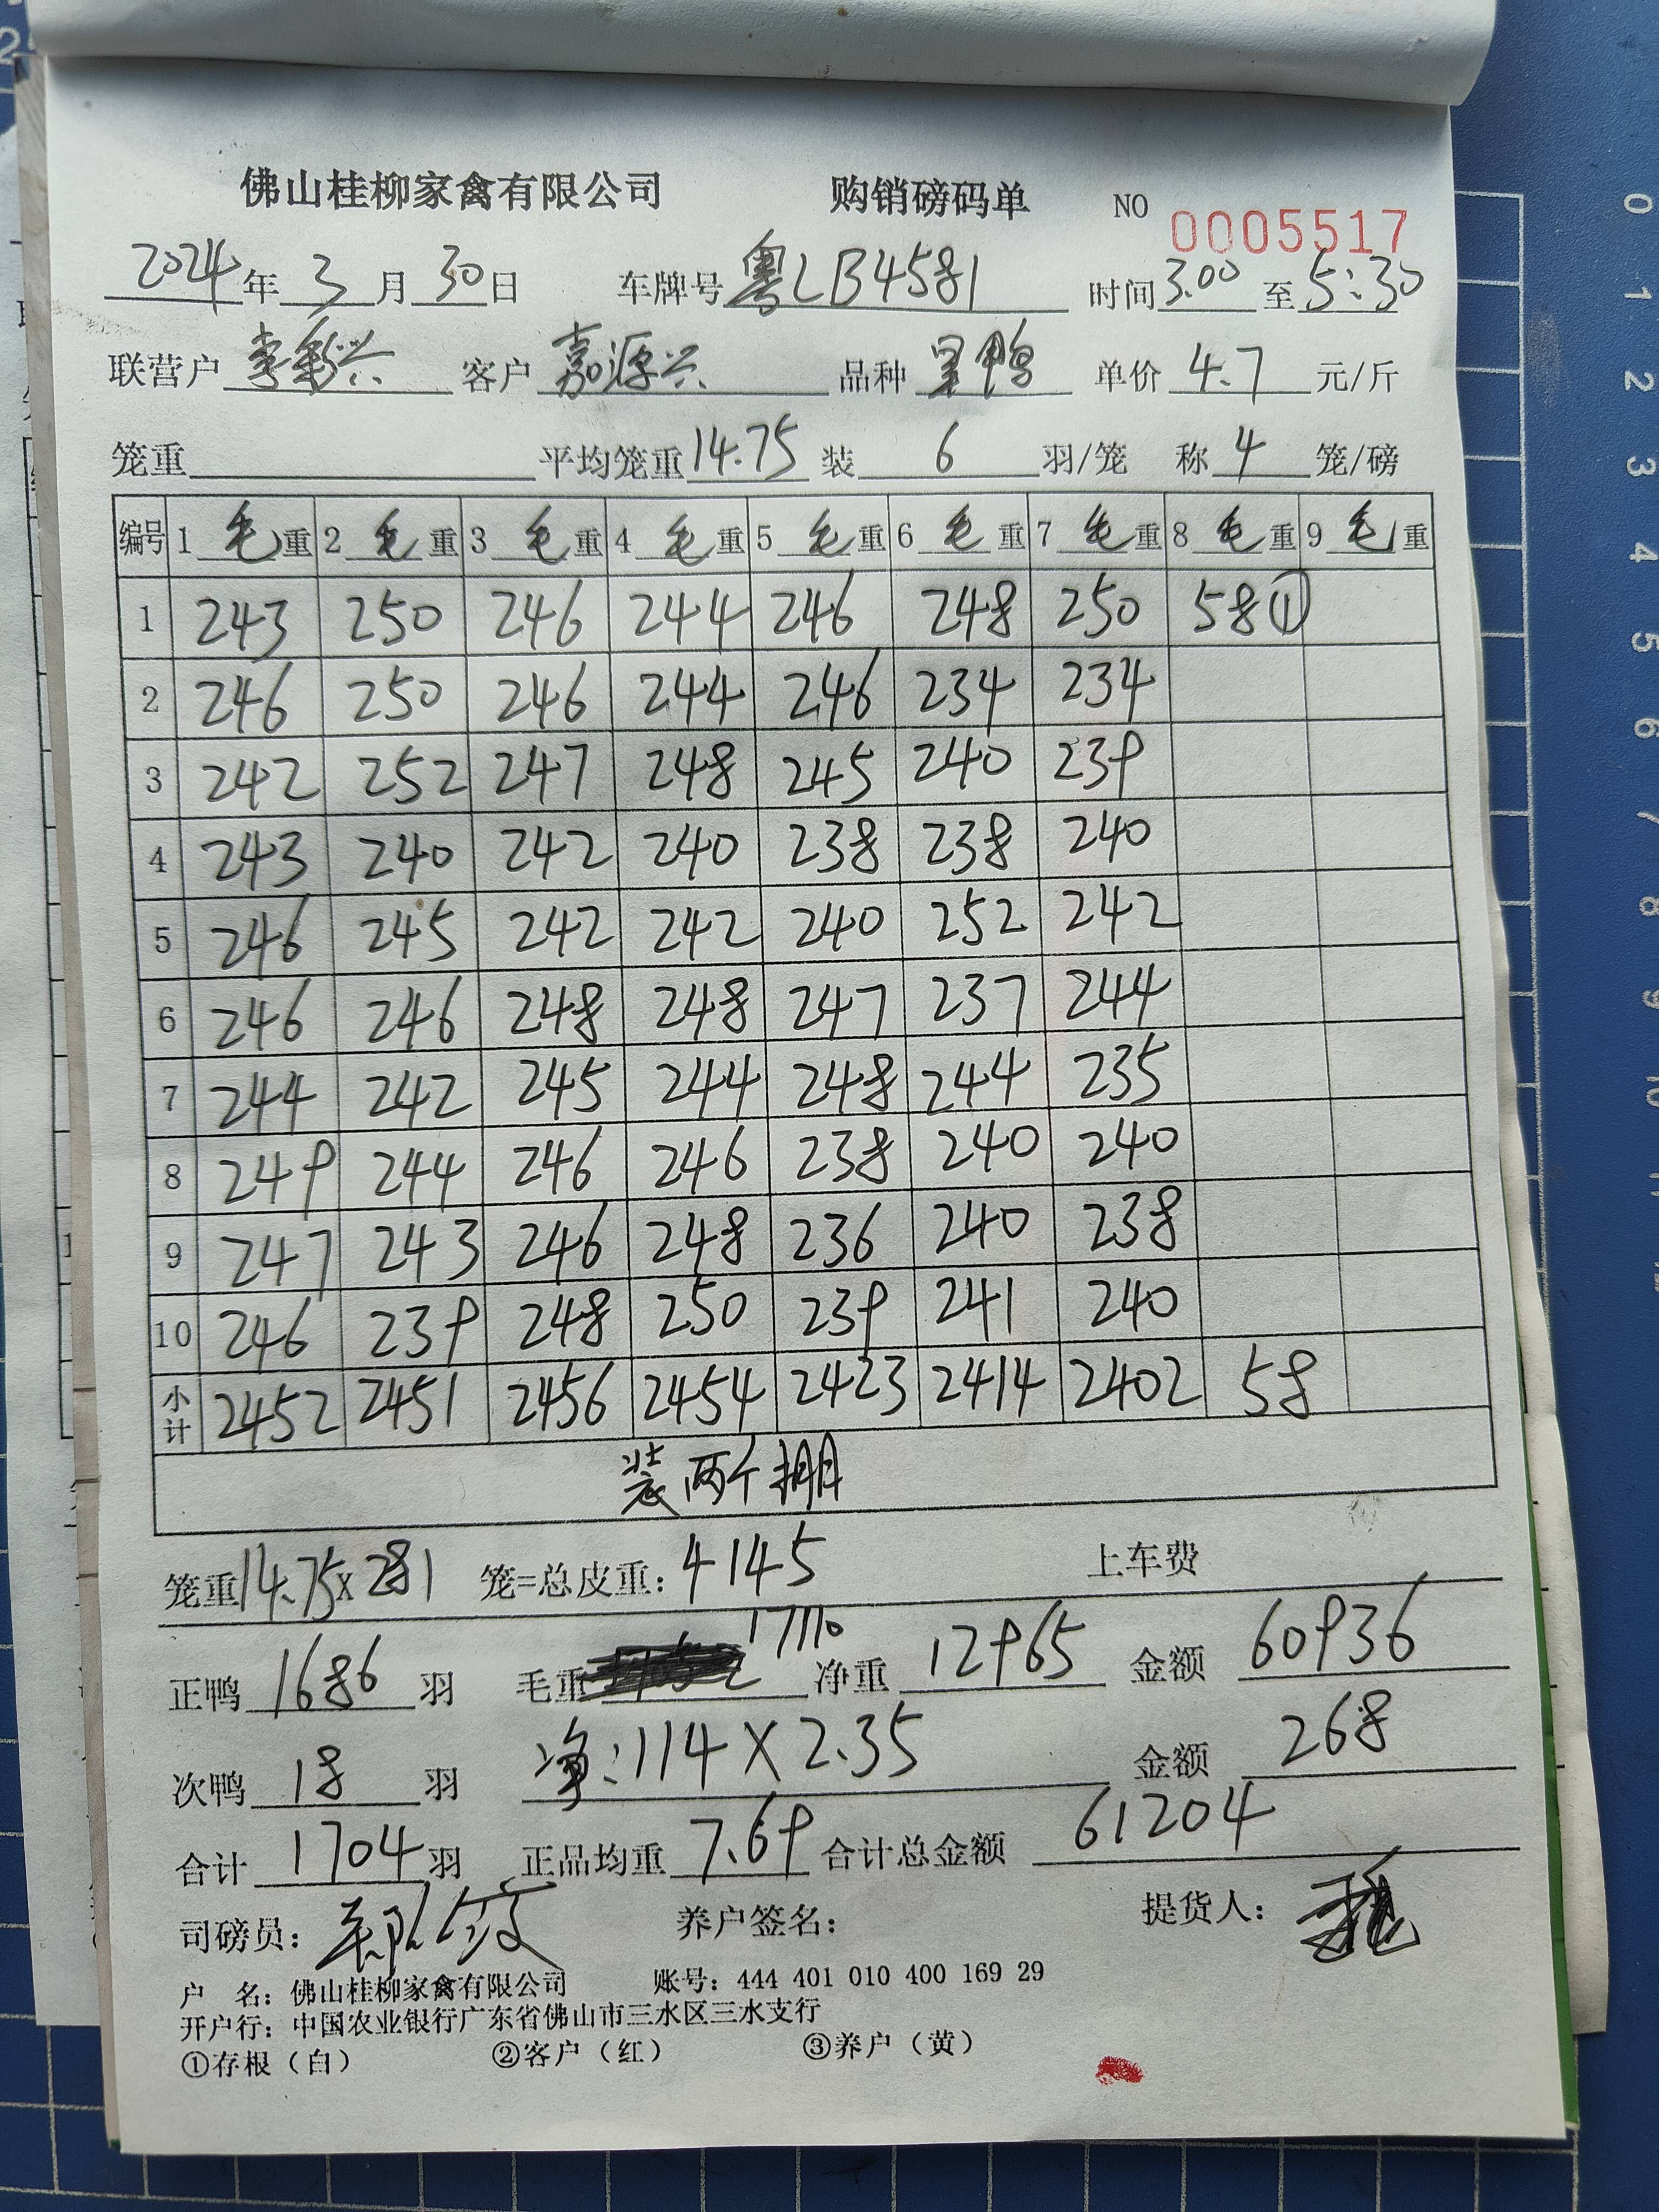 佛山桂柳家禽有限公司 购销磅码单 NO 0005517
2024年3月30日 车牌号 粤LB4581 时间3.00至5:30
联营户 李彩兴 客户 嘉源兴 品种 鸭 单价 4.7 元/斤
笼重 平均笼重 14.75 装 6 羽/笼 称 4 笼/磅
编号 1毛重 2毛重 3毛重 4毛重 5毛重 6毛重 7毛重 8毛重 9毛重
1 243 250 246 244 246 248 250 58①
2 246 250 246 244 246 234 234
3 242 252 247 248 245 240 239
4 243 240 242 240 238 238 240
5 246 245 242 242 240 252 242
6 246 246 248 248 247 237 244
7 244 242 245 244 248 244 235
8 249 244 246 246 238 240 240
9 247 243 246 248 236 240 238
10 246 239 248 250 239 241 240
小计 2452 2451 2456 2454 2423 2414 2402 58
装两个棚
笼重14.75x281 笼=总皮重:4145 上车费
正鸭 1686 羽 毛重 17110 净重 12965 金额 60936
次鸭 18 羽 净:114X2.35 金额 268
合计 1704 羽 正品均重 7.69 合计总金额 61204
司磅员: 养户签名: 提货人:
户 名: 佛山桂柳家禽有限公司 账号: 444 401 010 400 169 29
开户行: 中国农业银行广东省佛山市三水区三水支行
①存根（白） ②客户（红） ③养户（黄）